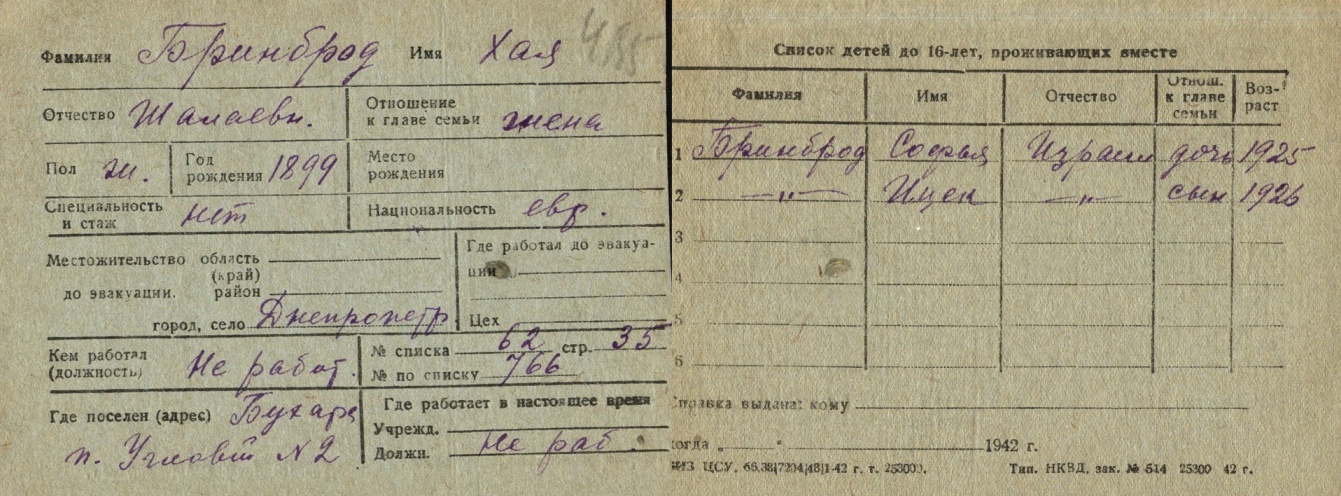 Фамилия Бринброд Имя Хая
Отчество Шалаевн. Отношение к главе семьи жена
Пол ж. Год рождения 1899 Место рождения
Специальность и стаж нет Национальность евр.
Местожительство до эвакуации. область (край)
район
город, село Днепропетр.
Где работал до эвакуа-
ции
Цех
Кем работал (должность) Не работ.
№ списка 62 стр. 35
№ по списку 766
Где поселен (адрес) Бухара
п. №2
Где работает в настоящее время
Учрежд.
Должн. не раб.
Список детей до 16-лет, проживающих вместе
Фамилия Имя Отчество Отнош. к главе семьи Воз-раст
1 Бринброд Софья Израил дочь 1925
2 —„— Ицек —„— сын 1926
3
4
5
6
Справка выдана: кому
когда „ “ 1942 г.
ЦСУ. т. 25300. Тип. НКВД, зак. № 514 25300 42 г.